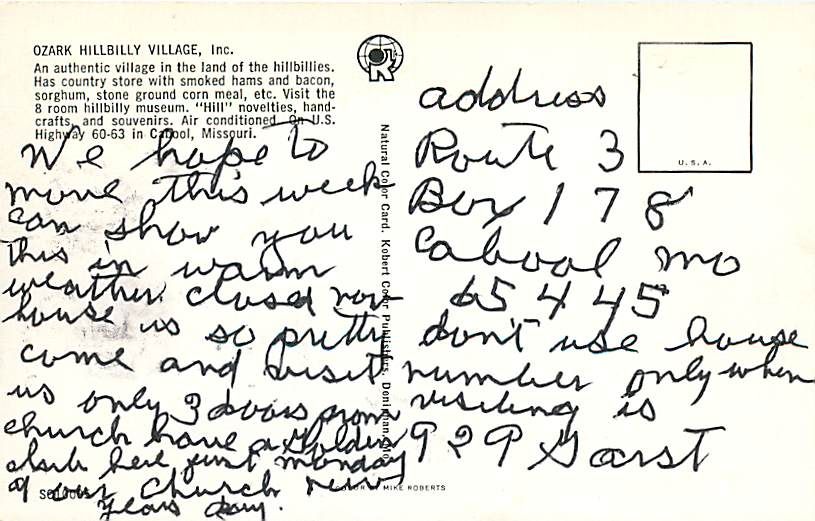 OZARK HILLBILLY VILLAGE, Inc.
An authentic village in the land of the hillbillies.
Has country store with smoked hams and bacon,
sorghum, stone ground corn meal, etc. Visit the
8 room hillbilly museum. "Hill" novelties, hand-
crafts, and souvenirs. Air conditioned. On U.S.
Highway 60-63 in Cabool, Missouri.
We hope to
move this week
can show you
this in warm
weather. closed now
house is so pretty
come and visit
us only 3 doors from
church have a Golden
club here just monday
at our church new
years day.
Natural Color Card. Kobert Color Publishers, Doniphan, Mo.
COLOR BY MIKE ROBERTS
U.S.A.
address
Route 3
Box 178
Cabool mo
65445
don't use house
number only when
visiting is
929 Garst